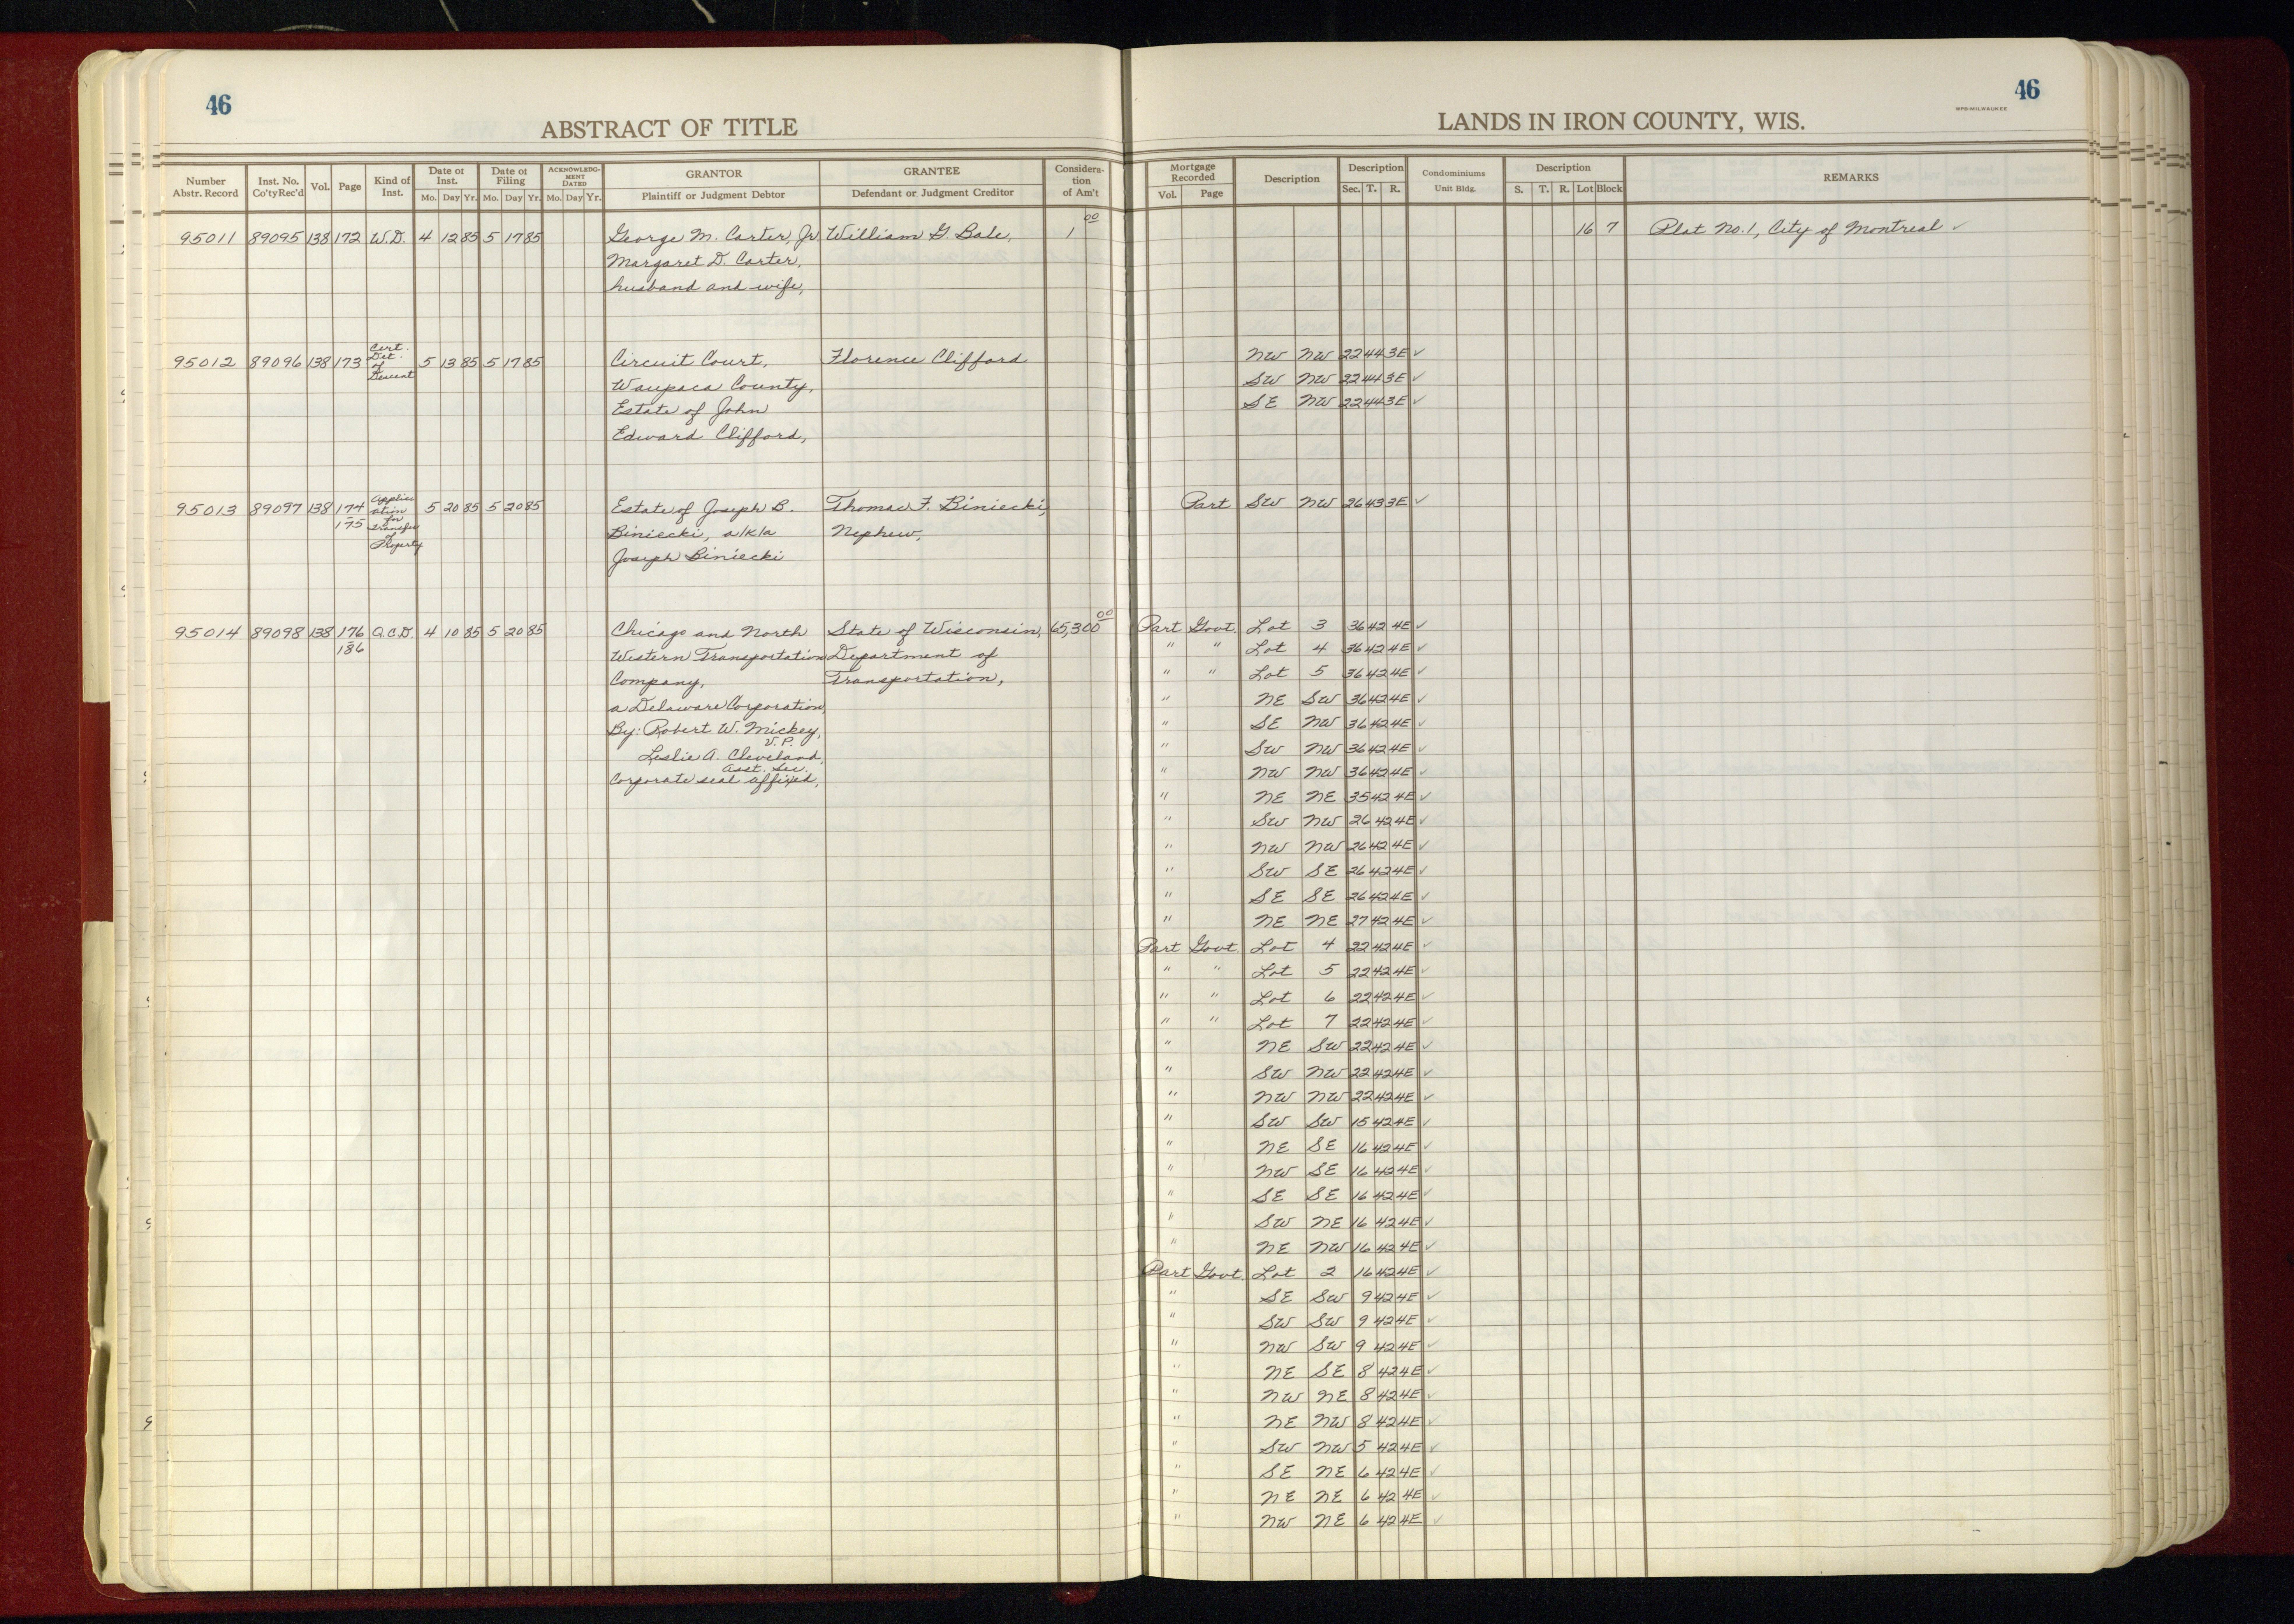 46
46
WPB-MILWAUKEE
ABSTRACT OF TITLE
LANDS IN IRON COUNTY, WIS.
Number Abstr. Record
Inst. No. Co'ty Rec'd
Vol.
Page
Kind of Inst.
Date of Inst.
Mo. Day Yr.
Date of Filing
Mo. Day Yr.
ACKNOWLEDG-MENT DATED
Mo. Day Yr.
GRANTOR
Plaintiff or Judgment Debtor
GRANTEE
Defendant or Judgment Creditor
Considera-tion of Am't
Mortgage Recorded
Vol. Page
Description
Description
Sec. T. R.
Condominiums
Unit Bldg.
Description
S. T. R. Lot Block
REMARKS
95011 89095 138 172 W.D. 4 12 85 5 17 85 George M. Carter, Jr. William G. Bale, 1 00 16 7 Plat No. 1, City of Montreal ✓
Margaret D. Carter,
husband and wife,
95012 89096 138 173 Cert. Det. of Descent 5 13 85 5 17 85 Circuit Court, Florence Clifford NW NW 22 44 3E ✓
Waupaca County, SW NW 22 44 3E ✓
Estate of John SE NW 22 44 3E ✓
Edward Clifford,
95013 89097 138 174-175 Application for Transfer of Property 5 20 85 5 20 85 Estate of Joseph B. Thomas F. Biniecki, Part SW NW 26 43 3E ✓
Biniecki, a/k/a Nephew,
Joseph Biniecki
95014 89098 138 176-186 Q.C.D. 4 10 85 5 20 85 Chicago and North State of Wisconsin, 65,300 00 Part Govt. Lot 3 36 42 4E ✓
Western Transportation Department of " " Lot 4 36 42 4E ✓
Company, Transportation, " " Lot 5 36 42 4E ✓
a Delaware Corporation, " NE SW 36 42 4E ✓
By: Robert W. Mickey, V.P. " SE NW 36 42 4E ✓
Leslie A. Cleveland, Asst. Sec. " SW NW 36 42 4E ✓
Corporate seal affixed, " NW NW 36 42 4E ✓
" NE NE 35 42 4E ✓
" SW NW 26 42 4E ✓
" NW NW 26 42 4E ✓
" SW SE 26 42 4E ✓
" SE SE 26 42 4E ✓
" NE NE 27 42 4E ✓
Part Govt. Lot 4 22 42 4E ✓
" " Lot 5 22 42 4E ✓
" " Lot 6 22 42 4E ✓
" " Lot 7 22 42 4E ✓
" NE SW 22 42 4E ✓
" SW NW 22 42 4E ✓
" NW NW 22 42 4E ✓
" SW SW 15 42 4E ✓
" NE SE 16 42 4E ✓
" NW SE 16 42 4E ✓
" SE SE 16 42 4E ✓
" SW NE 16 42 4E ✓
" NE NW 16 42 4E ✓
Part Govt. Lot 2 16 42 4E ✓
" SE SW 9 42 4E ✓
" SW SW 9 42 4E ✓
" NW SW 9 42 4E ✓
" NE SE 8 42 4E ✓
" NW NE 8 42 4E ✓
" NE NW 8 42 4E ✓
" SW NW 5 42 4E ✓
" SE NE 6 42 4E ✓
" NE NE 6 42 4E ✓
" NW NE 6 42 4E ✓